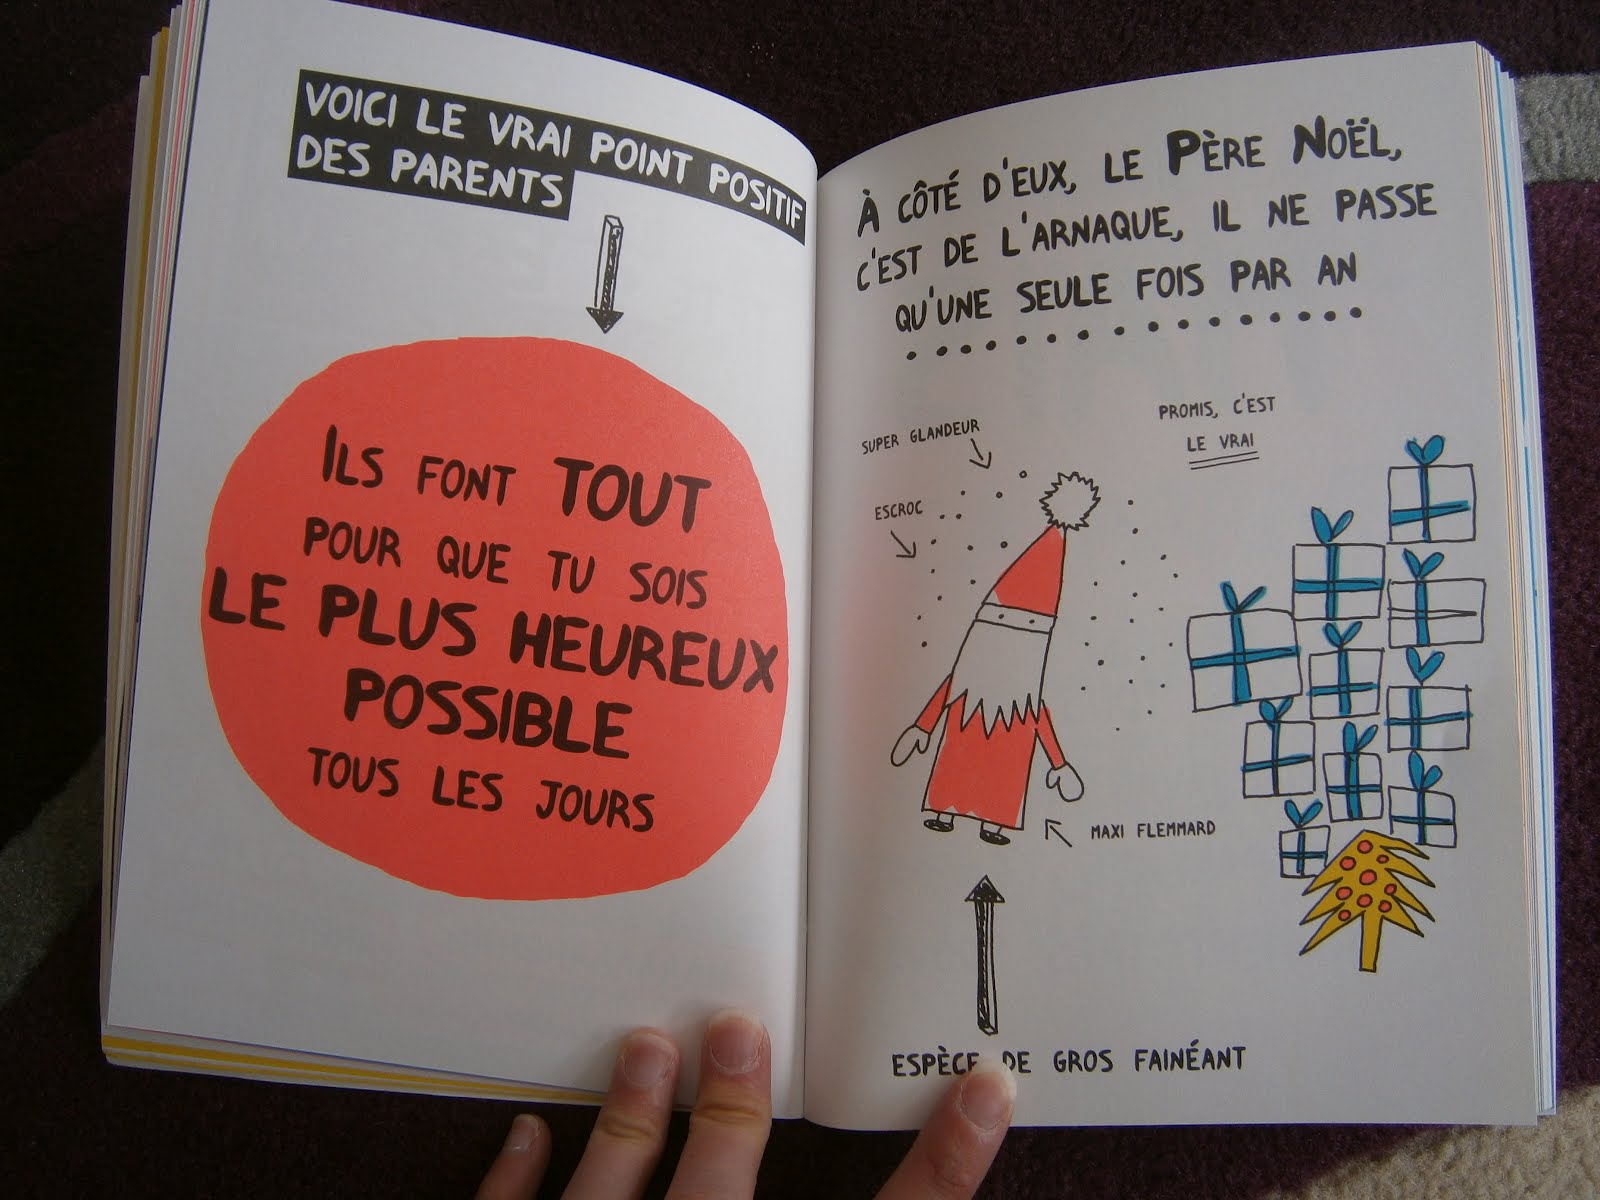 VOICI LE VRAI POINT POSITIF
DES PARENTS
ILS FONT TOUT
POUR QUE TU SOIS
LE PLUS HEUREUX
POSSIBLE
TOUS LES JOURS
À CÔTÉ D'EUX, LE PÈRE NOËL,
C'EST DE L'ARNAQUE, IL NE PASSE
QU'UNE SEULE FOIS PAR AN
SUPER GLANDEUR
ESCROC
PROMIS, C'EST
LE VRAI
MAXI FLEMMARD
ESPÈCE DE GROS FAINÉANT